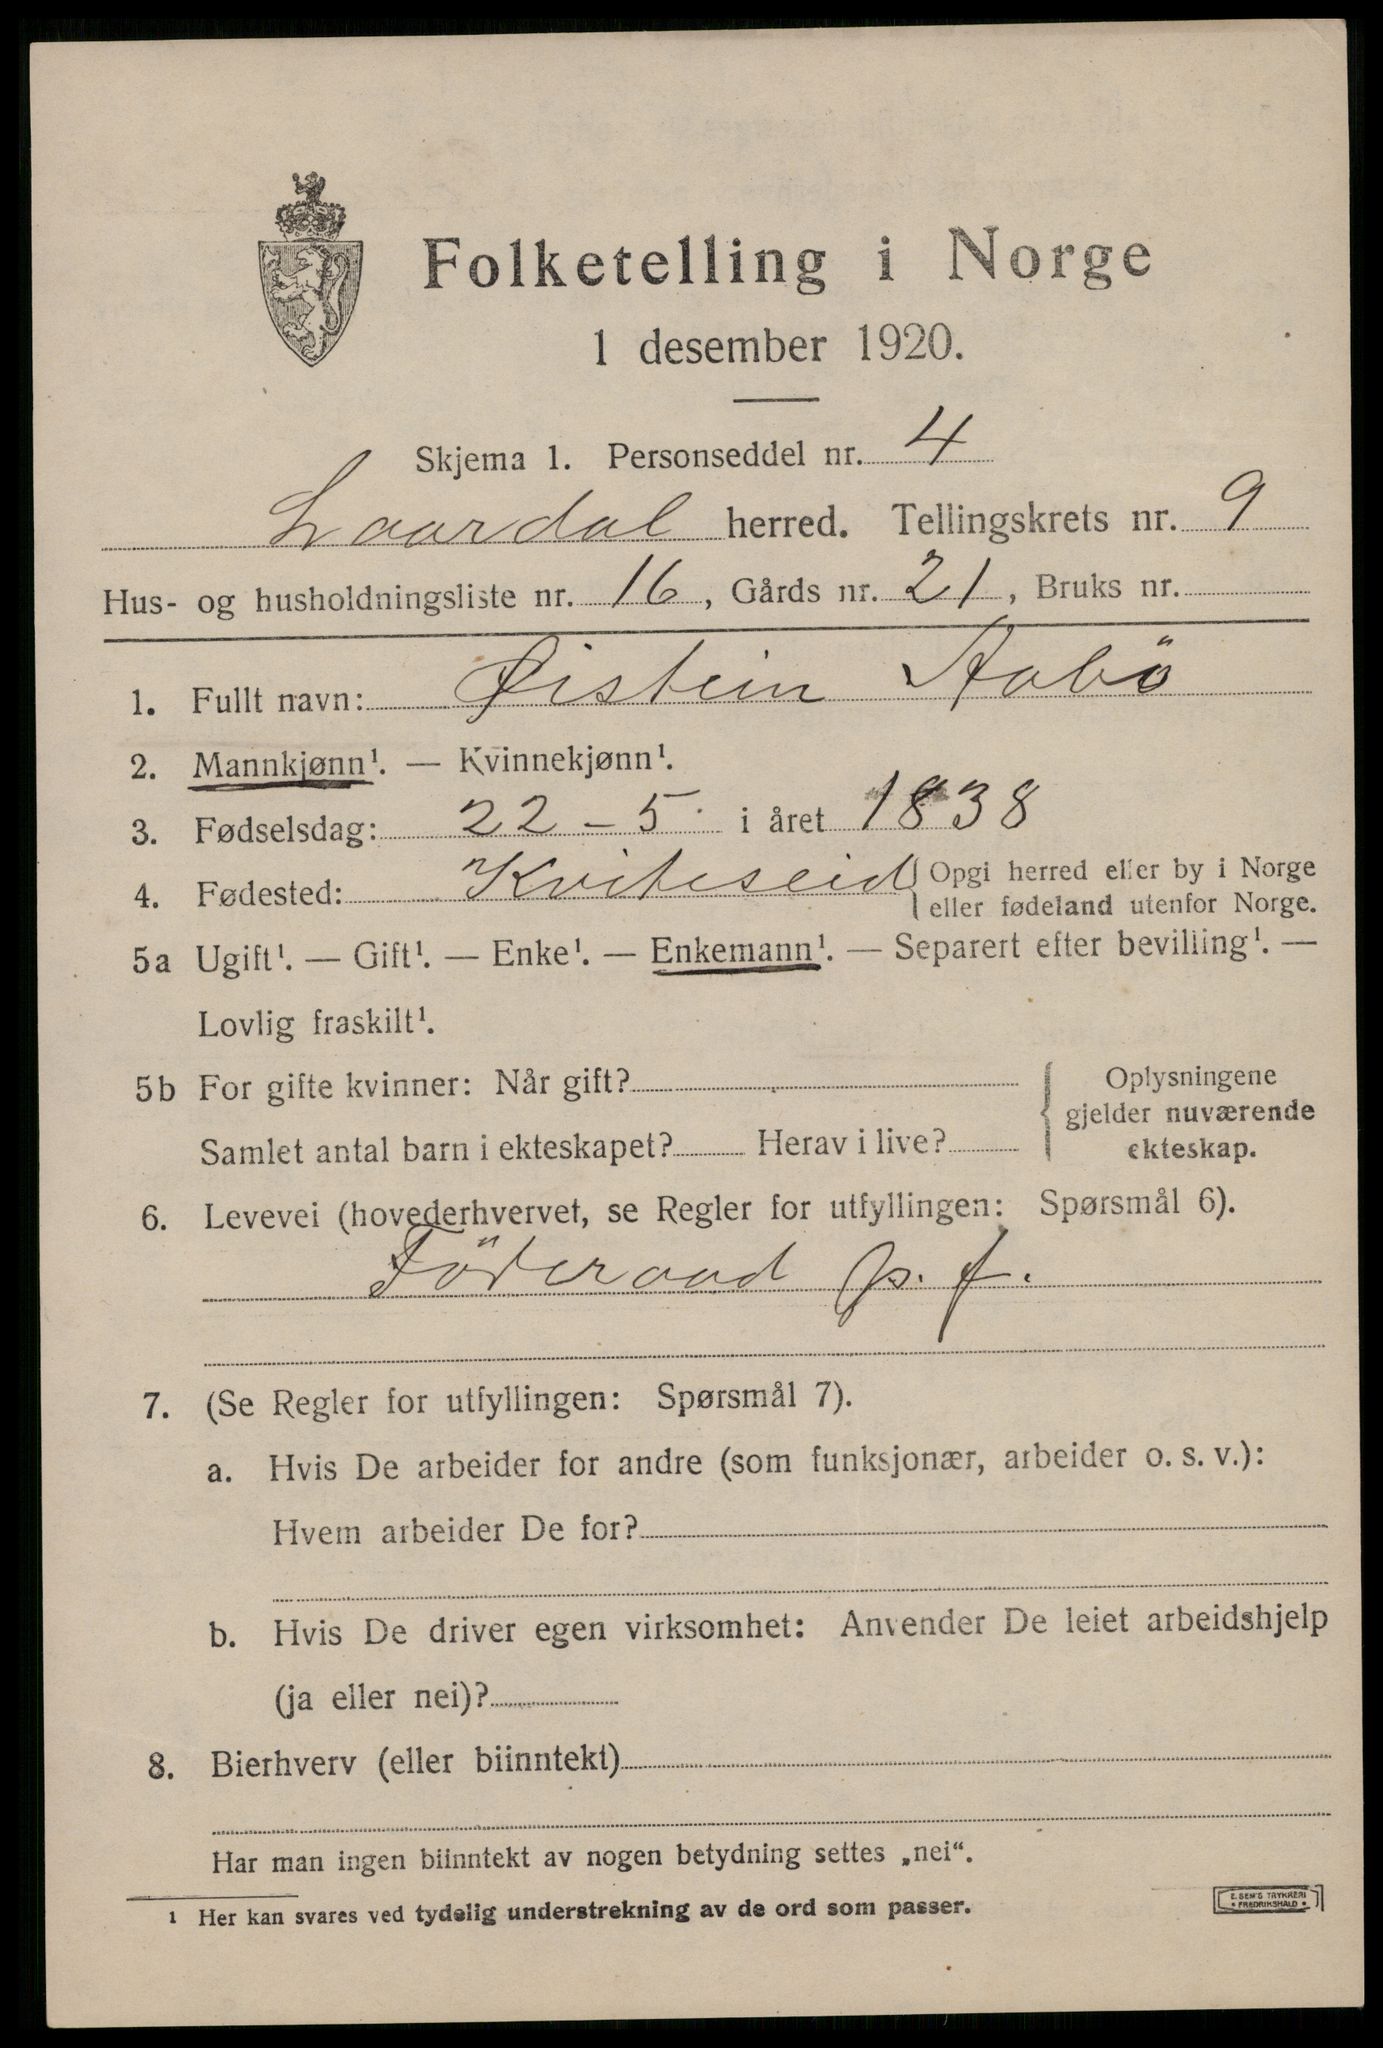 Folketelling i Norge
1 desember 1920.
Skjema 1. Personseddel nr. 4
Laardal herred. Tellingskrets nr. 9
Hus- og husholdningsliste nr. 16, Gårds nr. 21, Bruks nr.
1. Fullt navn: Øistein Aabö
2. Mannkjønn¹. — Kvinnekjønn¹.
3. Fødselsdag: 22 – 5 i året 1838
4. Fødested: Kviteseid { Opgi herred eller by i Norge
eller fødeland utenfor Norge.
5a Ugift¹. — Gift¹. — Enke¹. — Enkemann¹. — Separert efter bevilling¹. —
Lovlig fraskilt¹.
5b For gifte kvinner: Når gift? { Oplysningene
gjelder nuværende
Samlet antal barn i ekteskapet? Herav i live? ekteskap.
6. Levevei (hovederhvervet, se Regler for utfyllingen: Spørsmål 6).
Föderaad p. f.
7. (Se Regler for utfyllingen: Spørsmål 7).
a. Hvis De arbeider for andre (som funksjonær, arbeider o. s. v.):
Hvem arbeider De for?
b. Hvis De driver egen virksomhet: Anvender De leiet arbeidshjelp
(ja eller nei)?
8. Bierhverv (eller biinntekt)
Har man ingen biinntekt av nogen betydning settes „nei“.
¹ Her kan svares ved tydelig understrekning av de ord som passer.
E. SEM'S TRYKKERI
• FREDRIKSHALD •